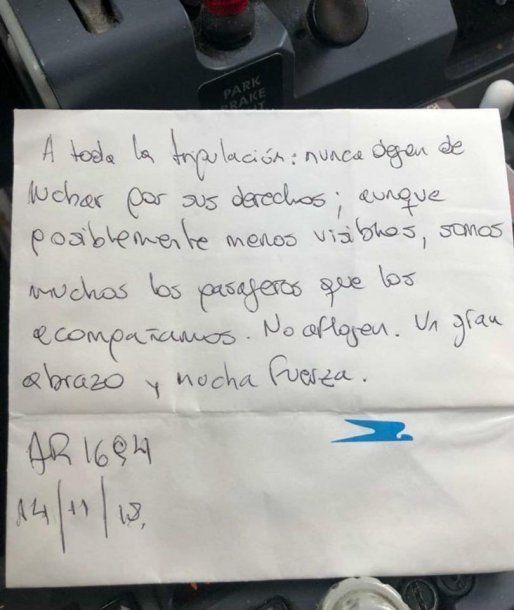 PARK
BRAKE
A toda la tripulación: nunca dejen de
luchar por sus derechos; aunque
posiblemente menos visibles, somos
muchos los pasajeros que los
acompañamos. No aflojen. Un gran
abrazo y mucha fuerza.
AR 1694
14/11/18.